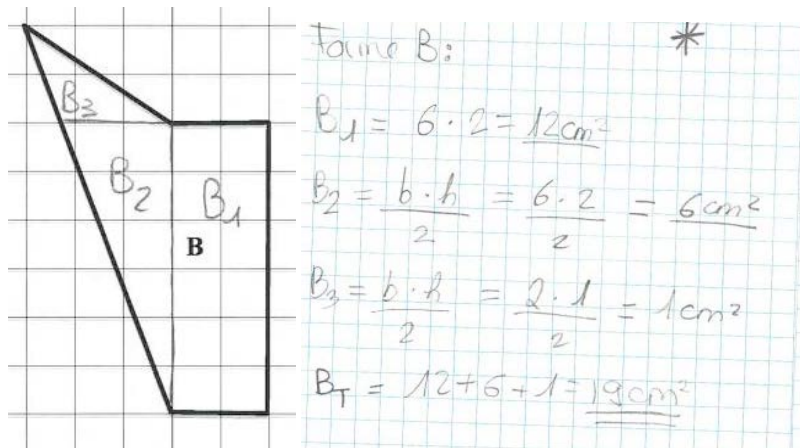 B3
B2
B1
B
*
B:
B1 = 6 · 2 = 12cm²
B2 = b · h / 2 = 6 · 2 / 2 = 6cm²
B3 = b · h / 2 = 2 · 1 / 2 = 1cm²
BT = 12 + 6 + 1 = 19cm²